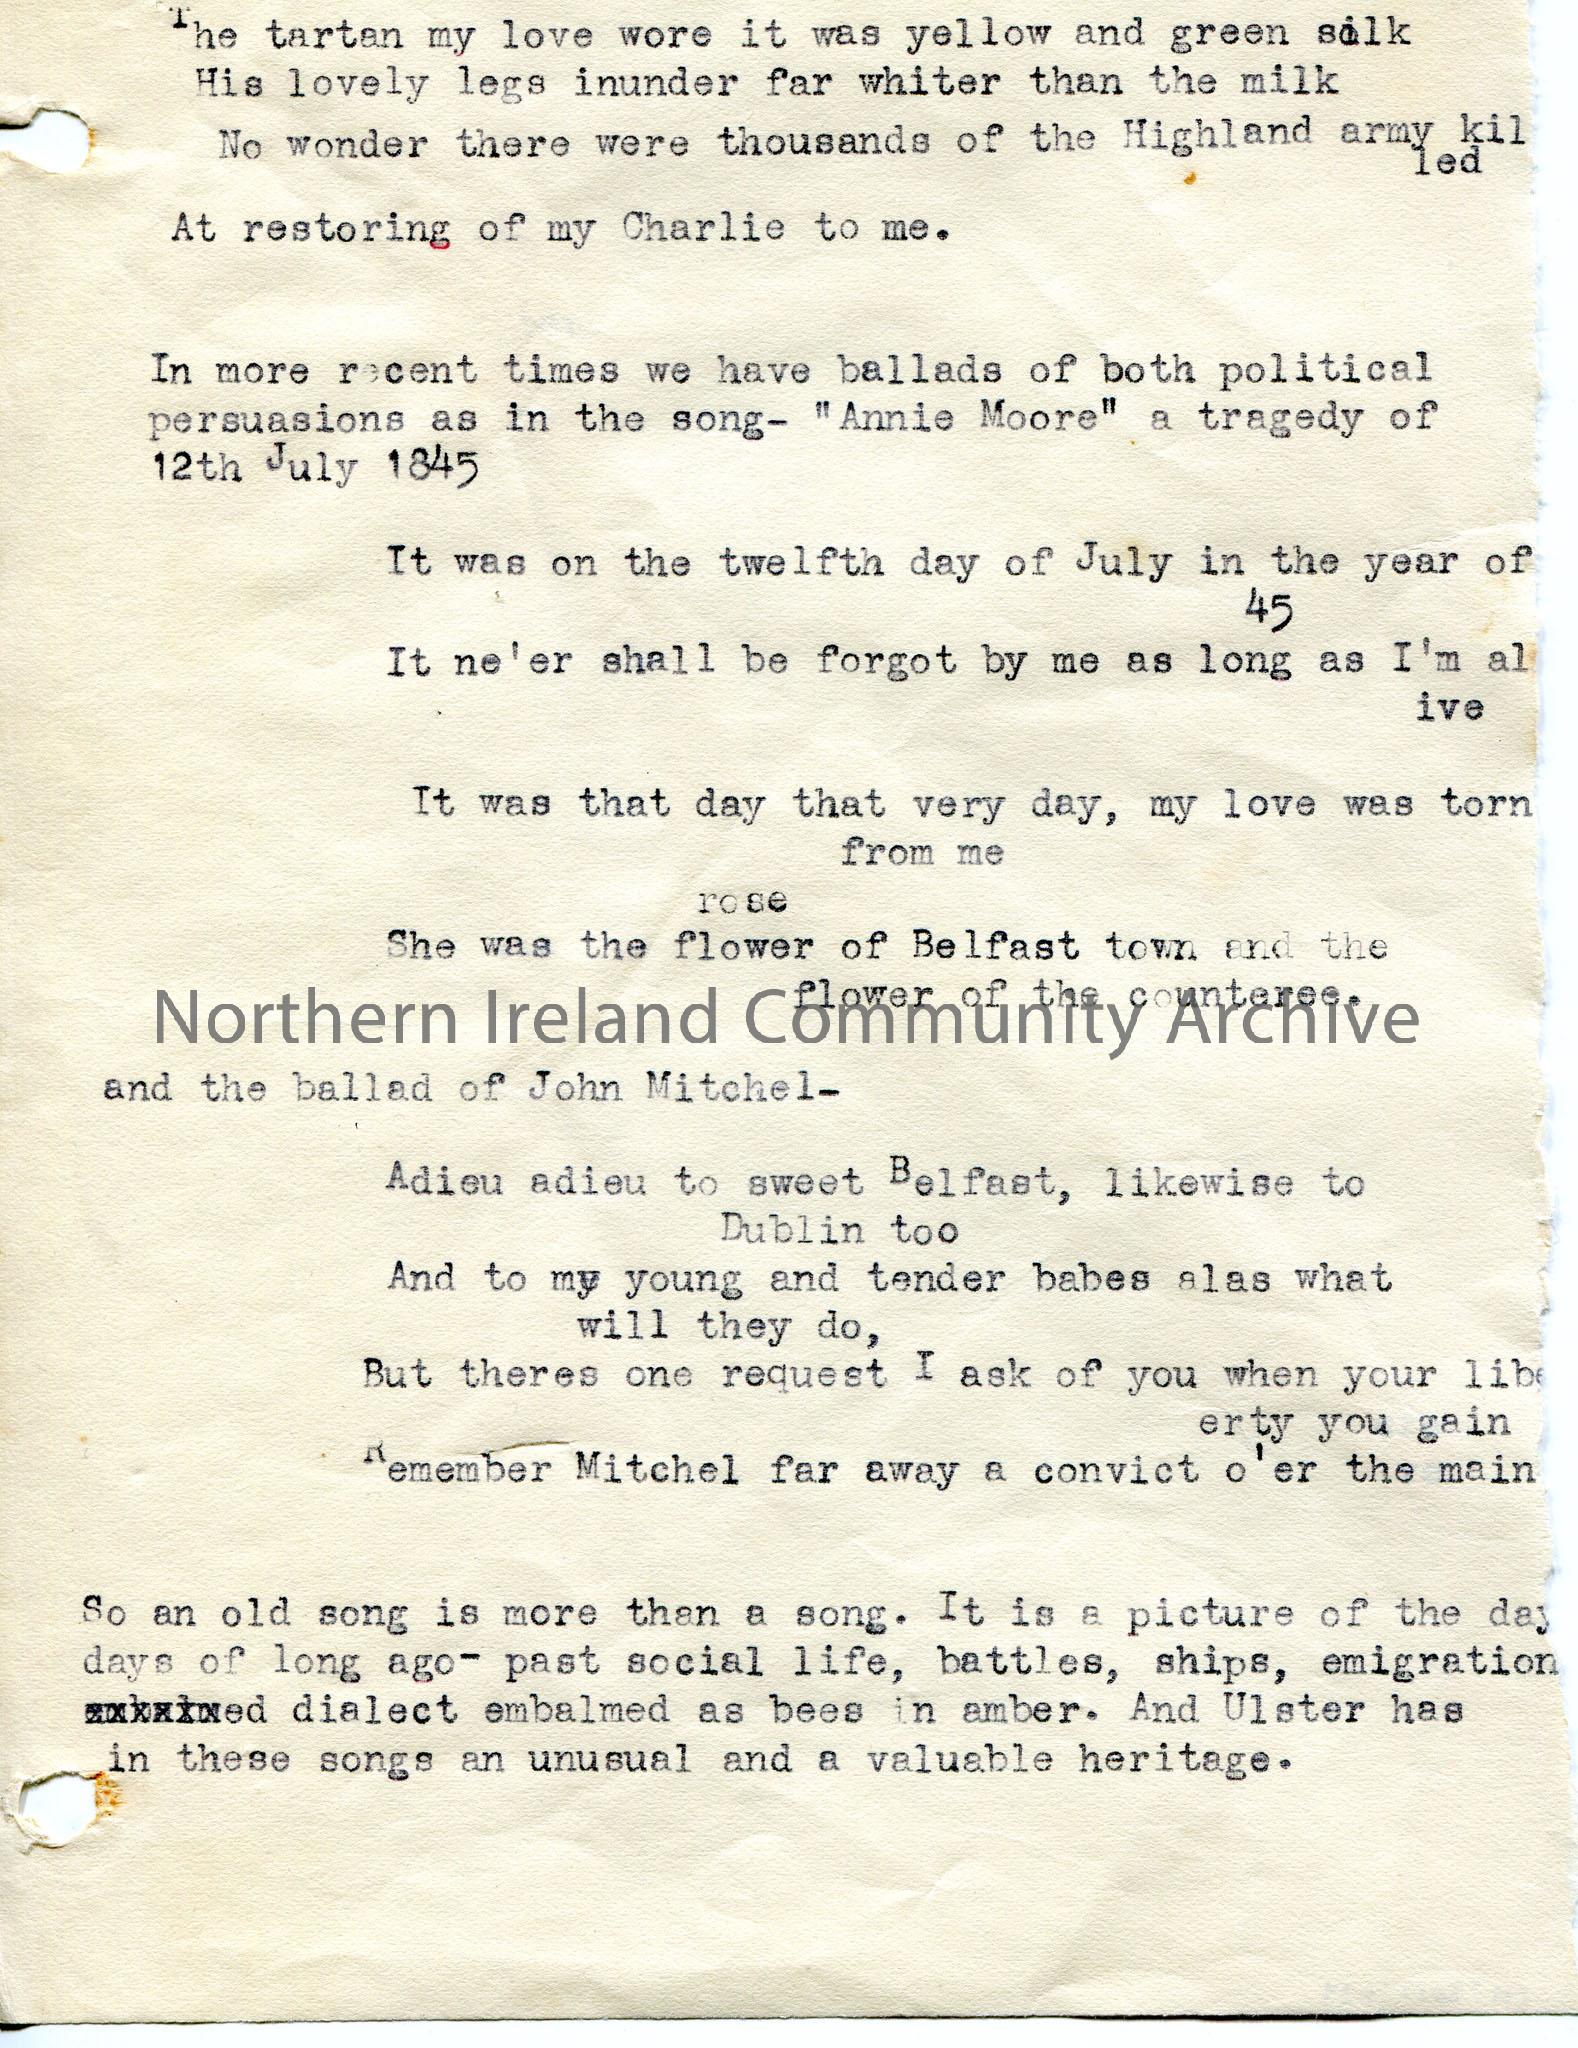 The tartan my love wore it was yellow and green silk
His lovely legs inunder far whiter than the milk
No wonder there were thousands of the Highland army kil
led
At restoring of my Charlie to me.
In more recent times we have ballads of both political
persuasions as in the song- "Annie Moore" a tragedy of
12th July 1845
It was on the twelfth day of July in the year of
45
It ne'er shall be forgot by me as long as I'm al
ive
It was that day that very day, my love was torn
from me
rose
She was the flower of Belfast town and the
flower of the counteree.
Northern Ireland Community Archive
and the ballad of John Mitchel-
Adieu adieu to sweet Belfast, likewise to
Dublin too
And to my young and tender babes alas what
will they do,
But theres one request I ask of you when your libe
erty you gain
Remember Mitchel far away a convict o'er the main
So an old song is more than a song. It is a picture of the day
days of long ago- past social life, battles, ships, emigration
dialect embalmed as bees in amber. And Ulster has
in these songs an unusual and a valuable heritage.